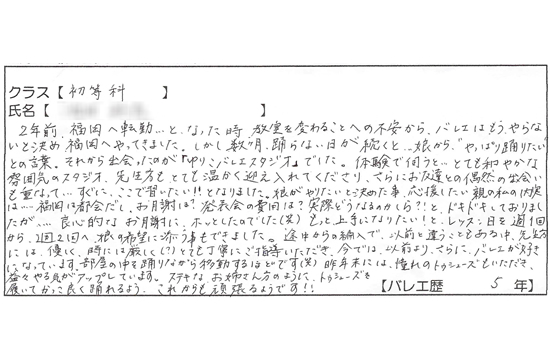 クラス【 初等科 】
氏名【 】
2年前、福岡へ転勤…と、なった時、教室を変わることへの不安から、バレエはもう、やらな
いと決め福岡へやってきました。しかし数ヶ月、踊らない日が続くと…娘から、"やっぱり踊りたい"
との言葉。それから出会ったのが「ゆりこバレエスタジオ」でした。体験で伺うと…とても和やかな
雰囲気のスタジオ、先生方もとても温かく迎え入れてくださり、さらにお友達との偶然の出会い
も重なって…すぐに、ここで習いたい!!となりました。娘がやりたいと決めた事、応援したい親の私の内実
は…福岡は都会だし、お月謝は?発表会の費用は?実際どうなるかしら?!と、ドキドキしておりまし
たが…良心的なお月謝に、ホッとしたのでした(笑)もっと上手になりたい!と、レッスン日を週1回
から、週2回へ、娘の希望に添う事もできました。途中からの編入で、以前と違うこともある中、先生方
には、優しく、時には厳しく(?)とても丁寧にご指導いただき、今では、以前より、さらに、バレエが好き
になっています。部屋の中を踊りながら移動するほどです(笑)昨年末には、憧れのトゥシューズもいただき、
益々やる気がアップしています。ステキなお姉さん方のように、トゥシューズを
履いてかっこ良く踊れるよう、これからも頑張るようです!!
【バレエ歴 5 年】